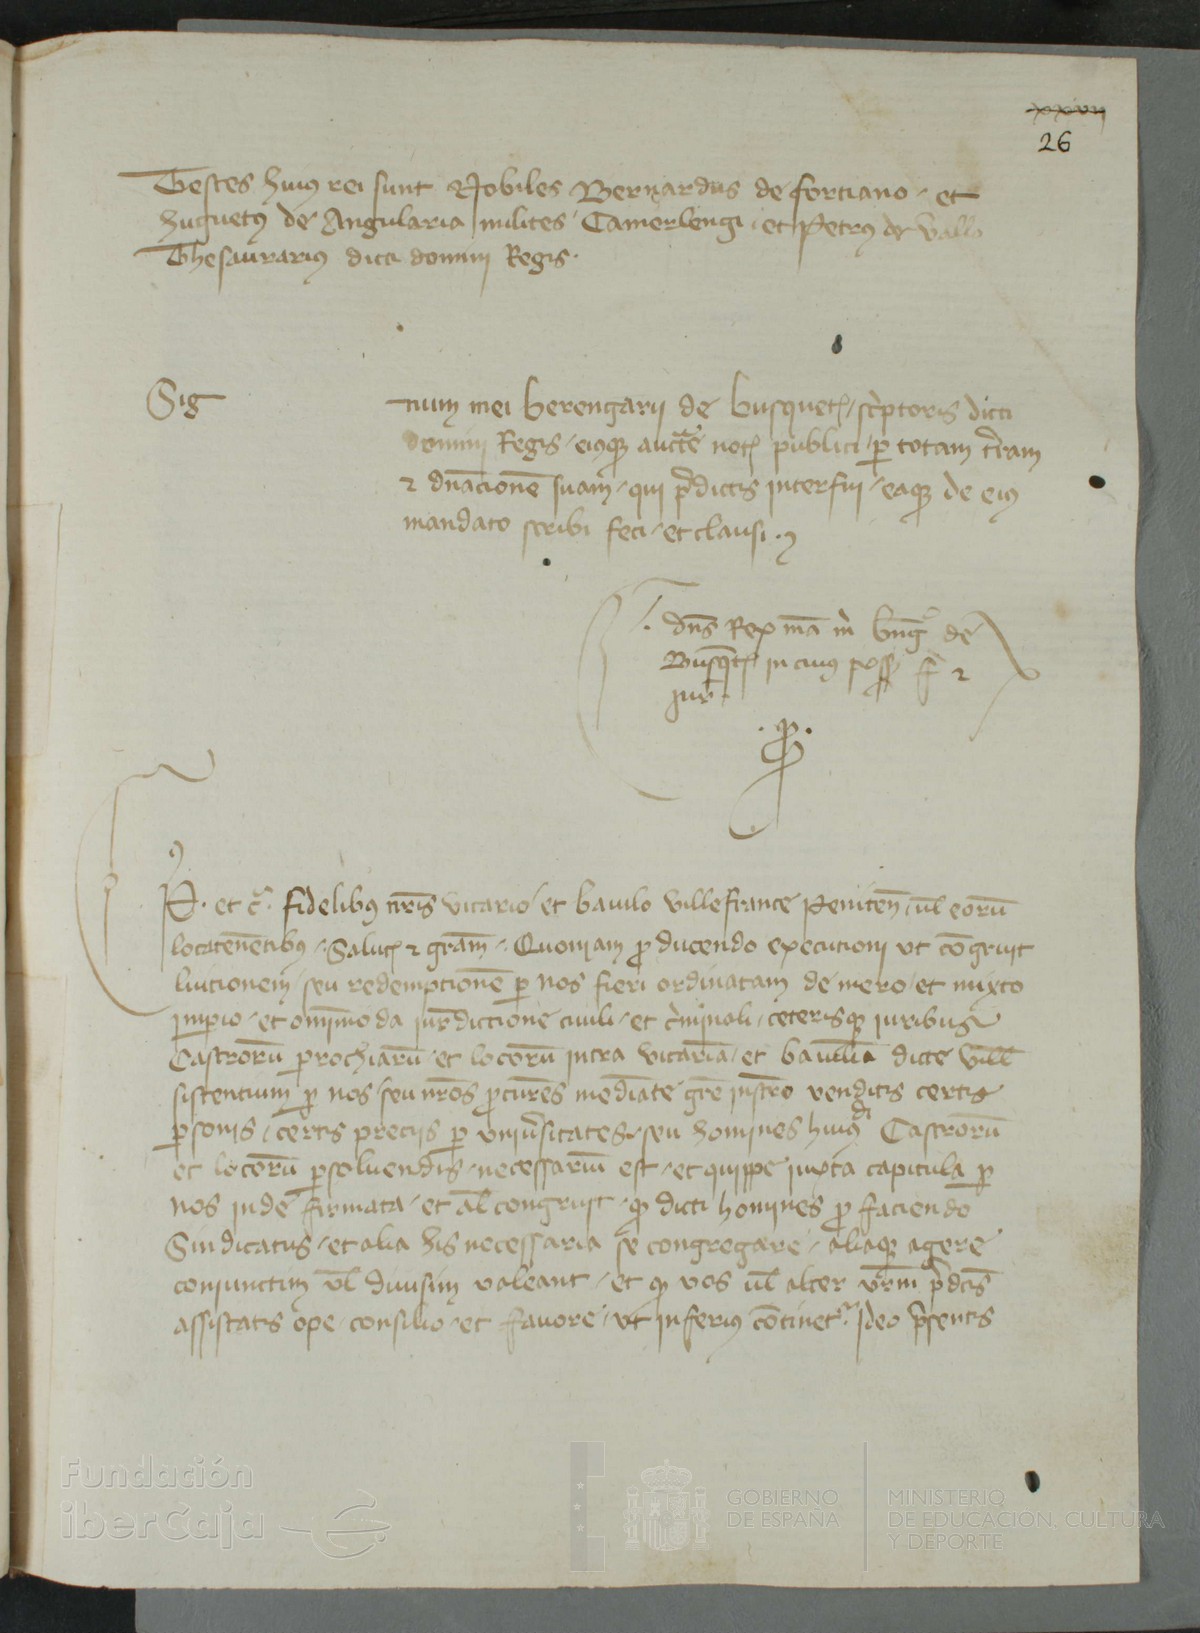 xxxvij
26
Testes huius rei sunt Nobiles Bernardus de fortiano et
huguetus de Angularia milites Camerlengi et Petrus de Vallo
Thesaurarius dicti domini Regis.
Sig num mei berengarii de busquetz scriptoris dicti
domini Regis eiusque aucte notz publici p totam tram
& dnacione suam qui pdictis interfui eaque de eius
mandato scribi feci et clausi.
dns Rex ma m bng de
Busqtz in cuius posse f &
iur
P.
P. et c. fidelibus nris vicario et baiulo villefrance Peniten ul eoru
locatenetibus Salutz & gram Quoniam p ducendo executioni ut congruit
luitionem seu redemptione p nos fieri ordinatam de mero et mixto
imperio et omimoda iurdiccione ciuili et criminali ceterisque iuribus
Castroru prochiaru et locoru intra vicaria et baiulia dicte ville
sistentium p nos seu nros pcures mediate gre instro venditis certis
psonis certis preciis p universitates seu homines huiusdi Castroru
et locoru psoluendis necessariu est et quippe iuxta capitula p
nos inde firmata et al congruit q dicti homines p faciendo
Sindicatus et alia his necessaria se congregare aliaque agere
coniunctim vl diuisim valeant et q vos ul alter vrm pdcis
assistatis ope consilio et fauore ut inferius continetr. Ideo psentis
Fundación
iberCaja
GOBIERNO
DE ESPAÑA
MINISTERIO
DE EDUCACIÓN, CULTURA
Y DEPORTE